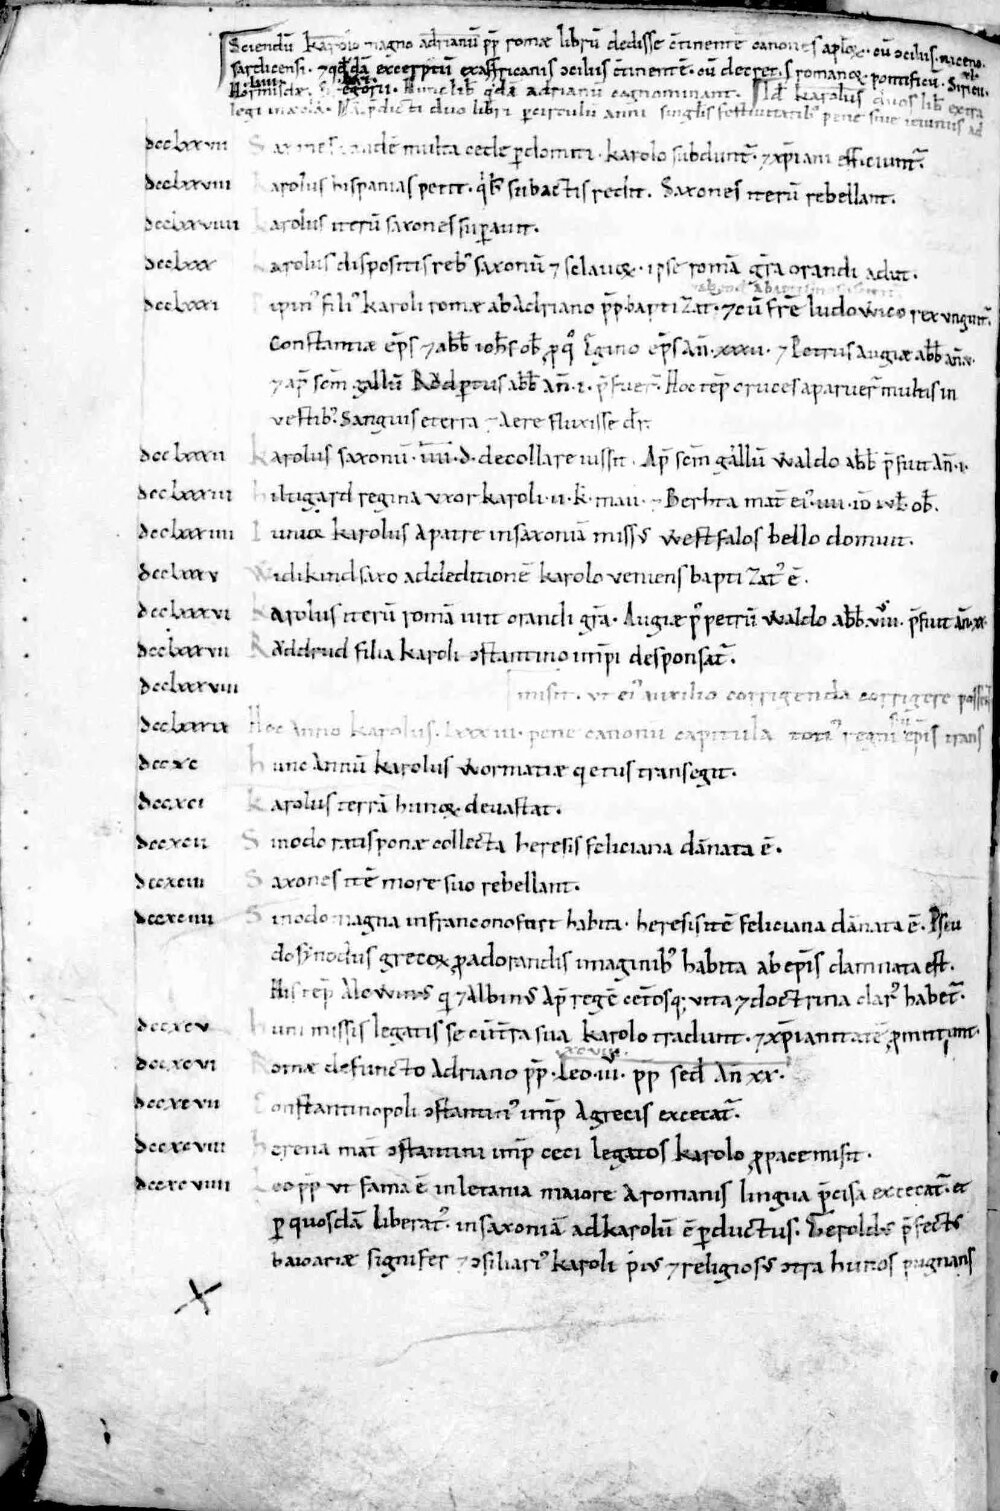 Sciendū karolo magno adrianū pp̄ romæ librū dedisse c̄tinentē canones aplōꝝ · cū ↄciliis · niceno ·
sardicensi · ⁊ qđdā excerptū ex affricanis ↄciliis c̄tinentē · cū decret̄ · s romanoꝝ pontificū · Siricii ·
Hormisdæ · Gregorii · Hunc lib̄ qđā adrianū cognominant · Idē karolus duos lib̄ extra
legi in æcla · p̄dicti duo libri p̄ circulū anni singl̄is festiuitatibꝰ pene siue ieiuniis ad
dcclxxvii Saxones multa cede pdomiti · karolo subdunt̄ · ⁊ xp̄iani efficiunt̄ ·
dcclxxviii Karolus hispanias petit · q̇b subactis rediit · Saxones iterū rebellant ·
dcclxxviiii Karolus iterū saxones superauit ·
dcclxxx Karolus dispositis rebꝰ saxonū ⁊ sclauoꝝ · ipse romā gr̄a orandi adiit ·
dcclxxxi Pipinꝰ filiꝰ karoli romæ ab Adriano pp̄ · baptizat̄ · ⁊ cū fr̄e ludowico rex unguit̄ ·
Constantiæ ep̄s ⁊ abb̄ ioh̄s ob̄ · p̄ q̊ Egino ep̄s añ · xxxii · ⁊ Petrus Augiæ abb̄ añ ·
⁊ ap̄ sc̄m gallū Rǒdpertus abb̄ añ · i · p̄fuer̄ · Hoc tēp cruces aparuer̄ multis in
uestibꝰ · Sanguis e terra ⁊ Aere fluxisse dr̄ ·
dcclxxxii Karolus saxonū · iiii · d · decollare iussit · Ap̄ sc̄m gallū waldo abb̄ p̄fuit añ · i ·
dcclxxxiii Hiltigard regina uxor karoli · ii · k̄ · maii · ⁊ Berhta mat̄ eiꝰ · iiii · id̄ iul̄ · ob̄ ·
dcclxxxiiii Iunior karolus a patre in saxoniā missꝰ westfalos bello domuit ·
dcclxxxv Widikind saxo ad deditionē karolo ueniens baptizatꝰ ē ·
dcclxxxvi Karolus iterū romā iuit orandi gr̄a · Augiæ p̊ petrū waldo abb̄ · viii · p̄fuit añ · xx ·
dcclxxxvii Rǒddrud filia karoli ↄstantino imp̄i desponsat̄ ·
dcclxxxviii misit · ut eiꝰ auxilio corrigenda corrigere possent
dcclxxxix Hoc Anno karolus · lxxxiii · pene canonū capitula totiꝰ regni sui ep̄is trans
dccxc Hunc Annū karolus wormatiæ quietus transegit ·
dccxci Karolus terrā hunoꝝ deuastat ·
dccxcii Sinodo ratisponæ collecta heresis feliciana dānata ē ·
dccxciii Saxones itē more suo rebellant ·
dccxciiii Sinodo magna in franconofurt habita · heresis itē feliciana dānata ē · Pseu
dosynodus grecoꝝ p̄ adorandis imaginibꝰ habita ab ep̄is damnata est ·
His tēp Alcwinꝰ qui ⁊ Albinꝰ Ap̄ regē cet̄osq; uita ⁊ doctrina clarꝰ habet̄ ·
dccxcv Huni missis legatis se cū t̄ra sua karolo tradunt · ⁊ xp̄ianitatē p̄mittunt ·
dccxcvi Romæ defuncto Adriano pp̄ · Leo · iii · pp sed̄ Añ xx ·
dccxcvii Constantinopoli ↄstantinꝰ imp̄ Agrecis excecat̄ ·
dccxcviii Herena mat̄ ↄstantini imp̄ ceci legatos karolo p̄ pace misit ·
dccxcviiii Leo pp̄ ut fama ē in letania maiore Aromanis lingua p̄cisa excecat̄ · et
p̄ quosdā liberatꝰ · in saxoniā ad karolū ē p̄ductus · Geroldꝰ p̄fectꝰ
baioariæ signifer ⁊ ↄsiliariꝰ karoli piꝰ ⁊ religiosꝰ ↄtra hunos pugnans